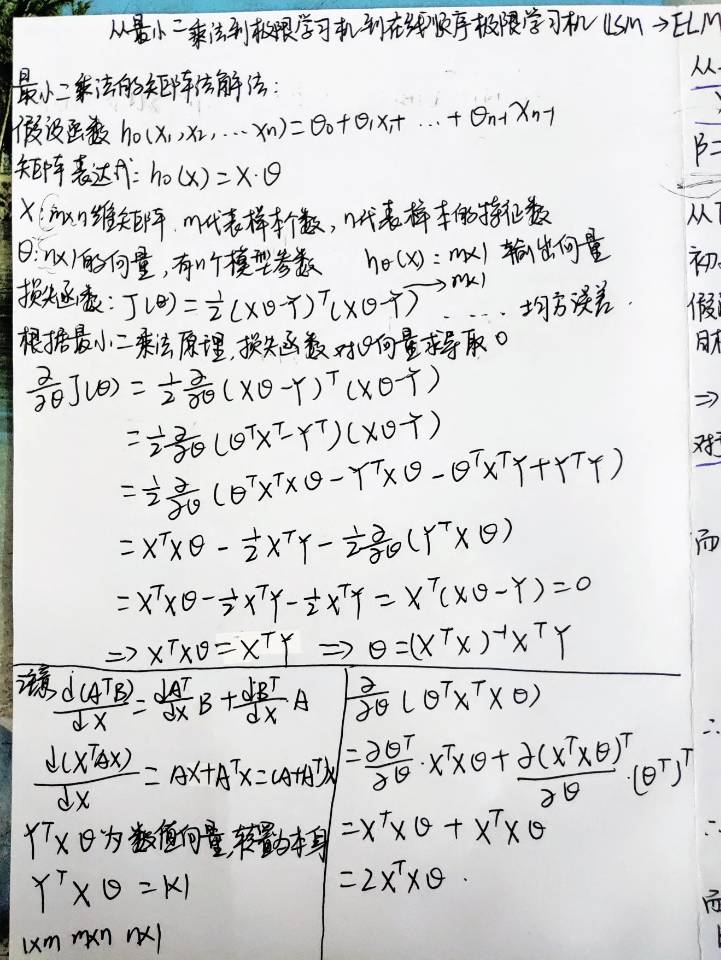 从最小二乘法到极限学习机到在线顺序极限学习机 LSM → ELM
最小二乘法的矩阵法解法:
假设函数 h₀(x₁, x₂, … xn) = θ₀ + θ₁x₁ + … + θn-1 xn-1
矩阵表达式: h₀(x) = X·θ
X: m×n维矩阵. m代表样本个数, n代表样本的特征数
θ: n×1的向量, 有n个模型参数 hθ(x): m×1 输出向量
损失函数: J(θ) = ½(Xθ-Y)ᵀ(Xθ-Y) → m×1 .... 均方误差.
根据最小二乘法原理, 损失函数对θ向量求导取0
∂/∂θ J(θ) = ½ ∂/∂θ (Xθ-Y)ᵀ(Xθ-Y)
= ½ ∂/∂θ (θᵀXᵀ-Yᵀ)(Xθ-Y)
= ½ ∂/∂θ (θᵀXᵀXθ - YᵀXθ - θᵀXᵀY + YᵀY)
= XᵀXθ - ½XᵀY - ½ ∂/∂θ (YᵀXθ)
= XᵀXθ - ½XᵀY - ½XᵀY = Xᵀ(Xθ-Y) = 0
⇒ XᵀXθ = XᵀY ⇒ θ = (XᵀX)⁻¹XᵀY
注意 d(AᵀB)/dx = dAᵀ/dx B + dBᵀ/dx A
d(XᵀAX)/dx = AX + AᵀX = (A+Aᵀ)X
YᵀXθ为数值向量, 转置为本身
YᵀXθ = 1×1
1×m m×n n×1
∂/∂θ (θᵀXᵀXθ)
= ∂θᵀ/∂θ · XᵀXθ + ∂(XᵀXθ)ᵀ/∂θ · (θᵀ)ᵀ
= XᵀXθ + XᵀXθ
= 2XᵀXθ.
从
β=
从
初
假
目标
⇒
对于
而
∴
∴
而